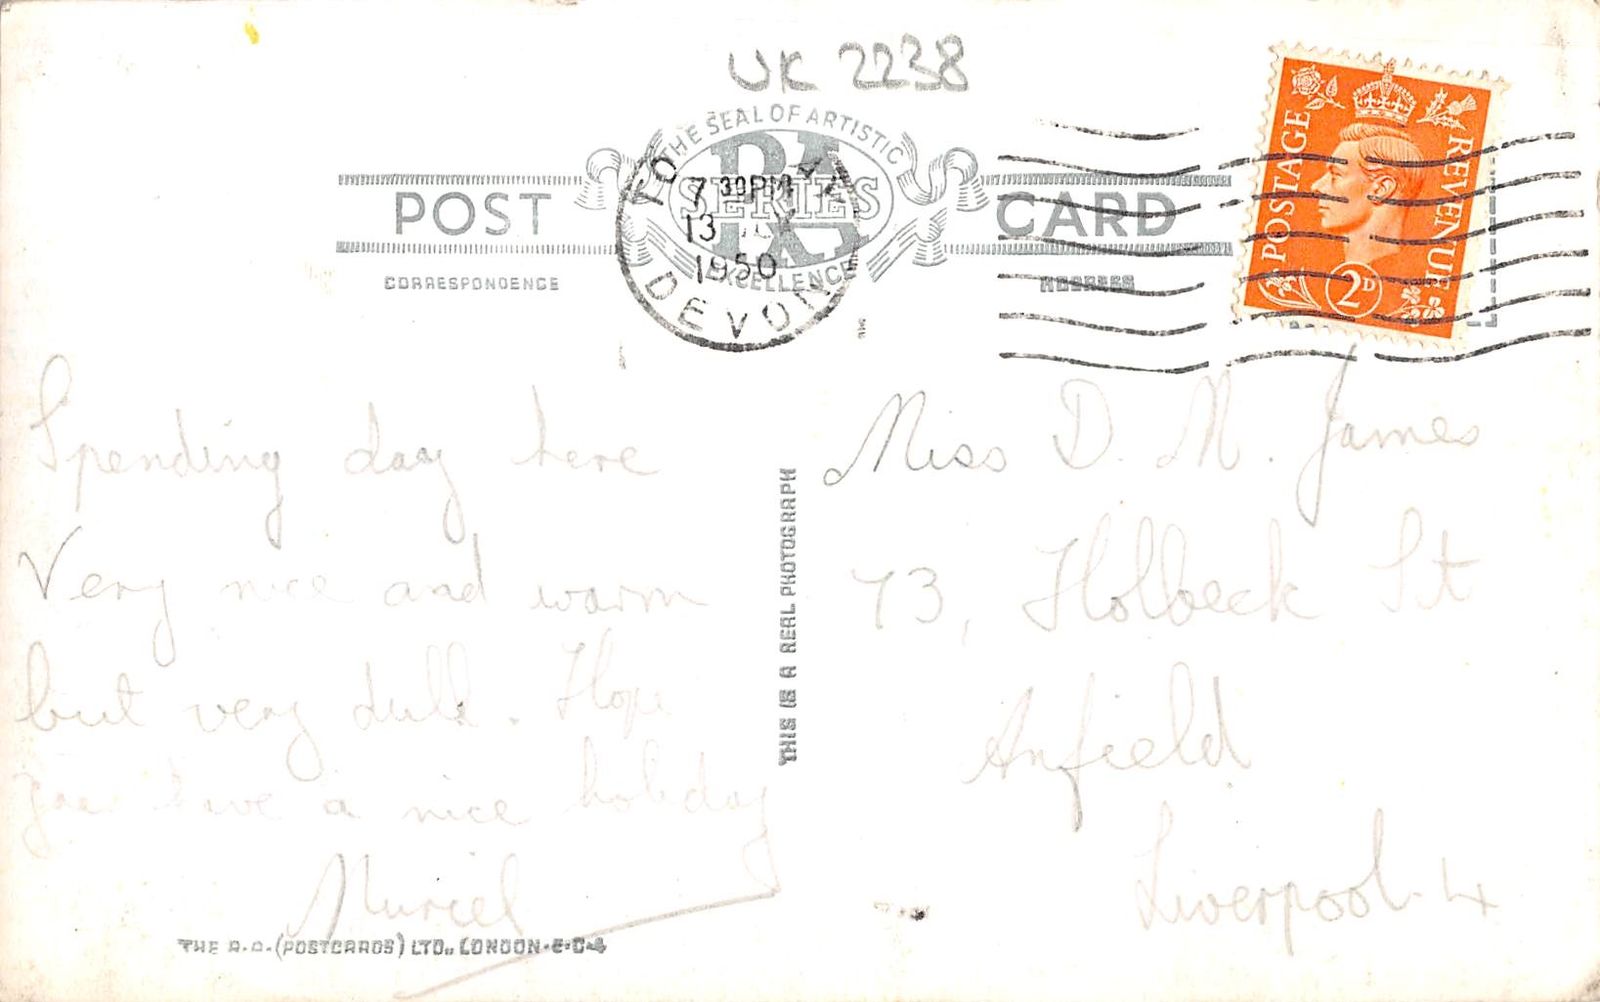 UK 2238
THE SEAL OF ARTISTIC
RA
SERIES
EXCELLENCE
POST CARD
CORRESPONDENCE
ADDRESS
7 30PM
13
1950
DEVON
POSTAGE REVENUE
2D
Spending day here
Very nice and warm
but very dull. Hope
you have a nice holiday
Muriel
THIS IS A REAL PHOTOGRAPH
Miss D. M. James
73, Holbeck St
Anfield
Liverpool. 4
THE R.A. (POSTCARDS) LTD., LONDON.E.C.4